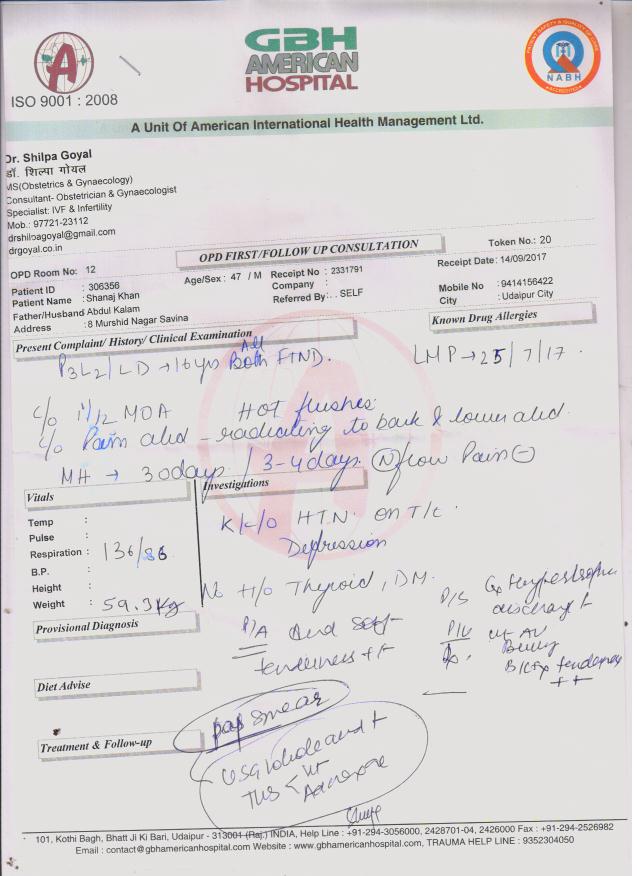 GBH
AMERICAN
HOSPITAL
ISO 9001 : 2008
PATIENT SAFETY & QUALITY OF CARE
NABH
ACCREDITED
A Unit Of American International Health Management Ltd.
Dr. Shilpa Goyal
डॉ. शिल्पा गोयल
MS(Obstetrics & Gynaecology)
Consultant- Obstetrician & Gynaecologist
Specialist: IVF & Infertility
Mob.: 97721-23112
drshilpagoyal@gmail.com
drgoyal.co.in
OPD FIRST/FOLLOW UP CONSULTATION
Token No.: 20
OPD Room No: 12
Age/Sex : 47 / M
Receipt No : 2331791
Receipt Date: 14/09/2017
Patient ID : 306356
Company :
Patient Name : Shanaj Khan
Referred By: . . SELF
Mobile No : 9414156422
Father/Husband Abdul Kalam
City : Udaipur City
Address : 8 Murshid Nagar Savina
Present Complaint/ History/ Clinical Examination
Known Drug Allergies
P3L2/LD → 16yrs Both All FTND.
LMP → 25/7/17.
C/o 1 1/2 MOA Hot flushes
C/o Pain abd - radiating to back & lower abd.
MH → 30days / 3-4days (N) flow Pain (-)
Vitals
Investigations
Temp :
Pulse :
Respiration : 136/86
B.P. :
Height :
Weight : 59.3kg
K/c/o HTN on T/t.
Depression
No H/o Thyroid, DM.
Provisional Diagnosis
P/A Abd soft
tenderness ++
P/S Cx Hypertrophy
discharge +
P/V ut AV
Bulky
tenderness
++
Diet Advise
Treatment & Follow-up
pap smear
USG whole abd +
TVS < ut
Adnexae
101, Kothi Bagh, Bhatt Ji Ki Bari, Udaipur - 313001 (Raj.) INDIA, Help Line : +91-294-3056000, 2428701-04, 2426000 Fax : +91-294-2526982
Email : contact@gbhamericanhospital.com Website : www.gbhamericanhospital.com, TRAUMA HELP LINE : 9352304050